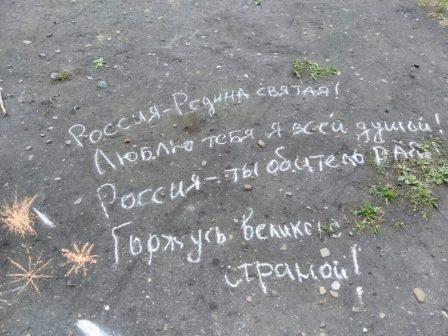 Россия-Родина святая!
Люблю тебя я всей душой!
Россия-ты обитель РАЯ
Горжусь великою
страмой!